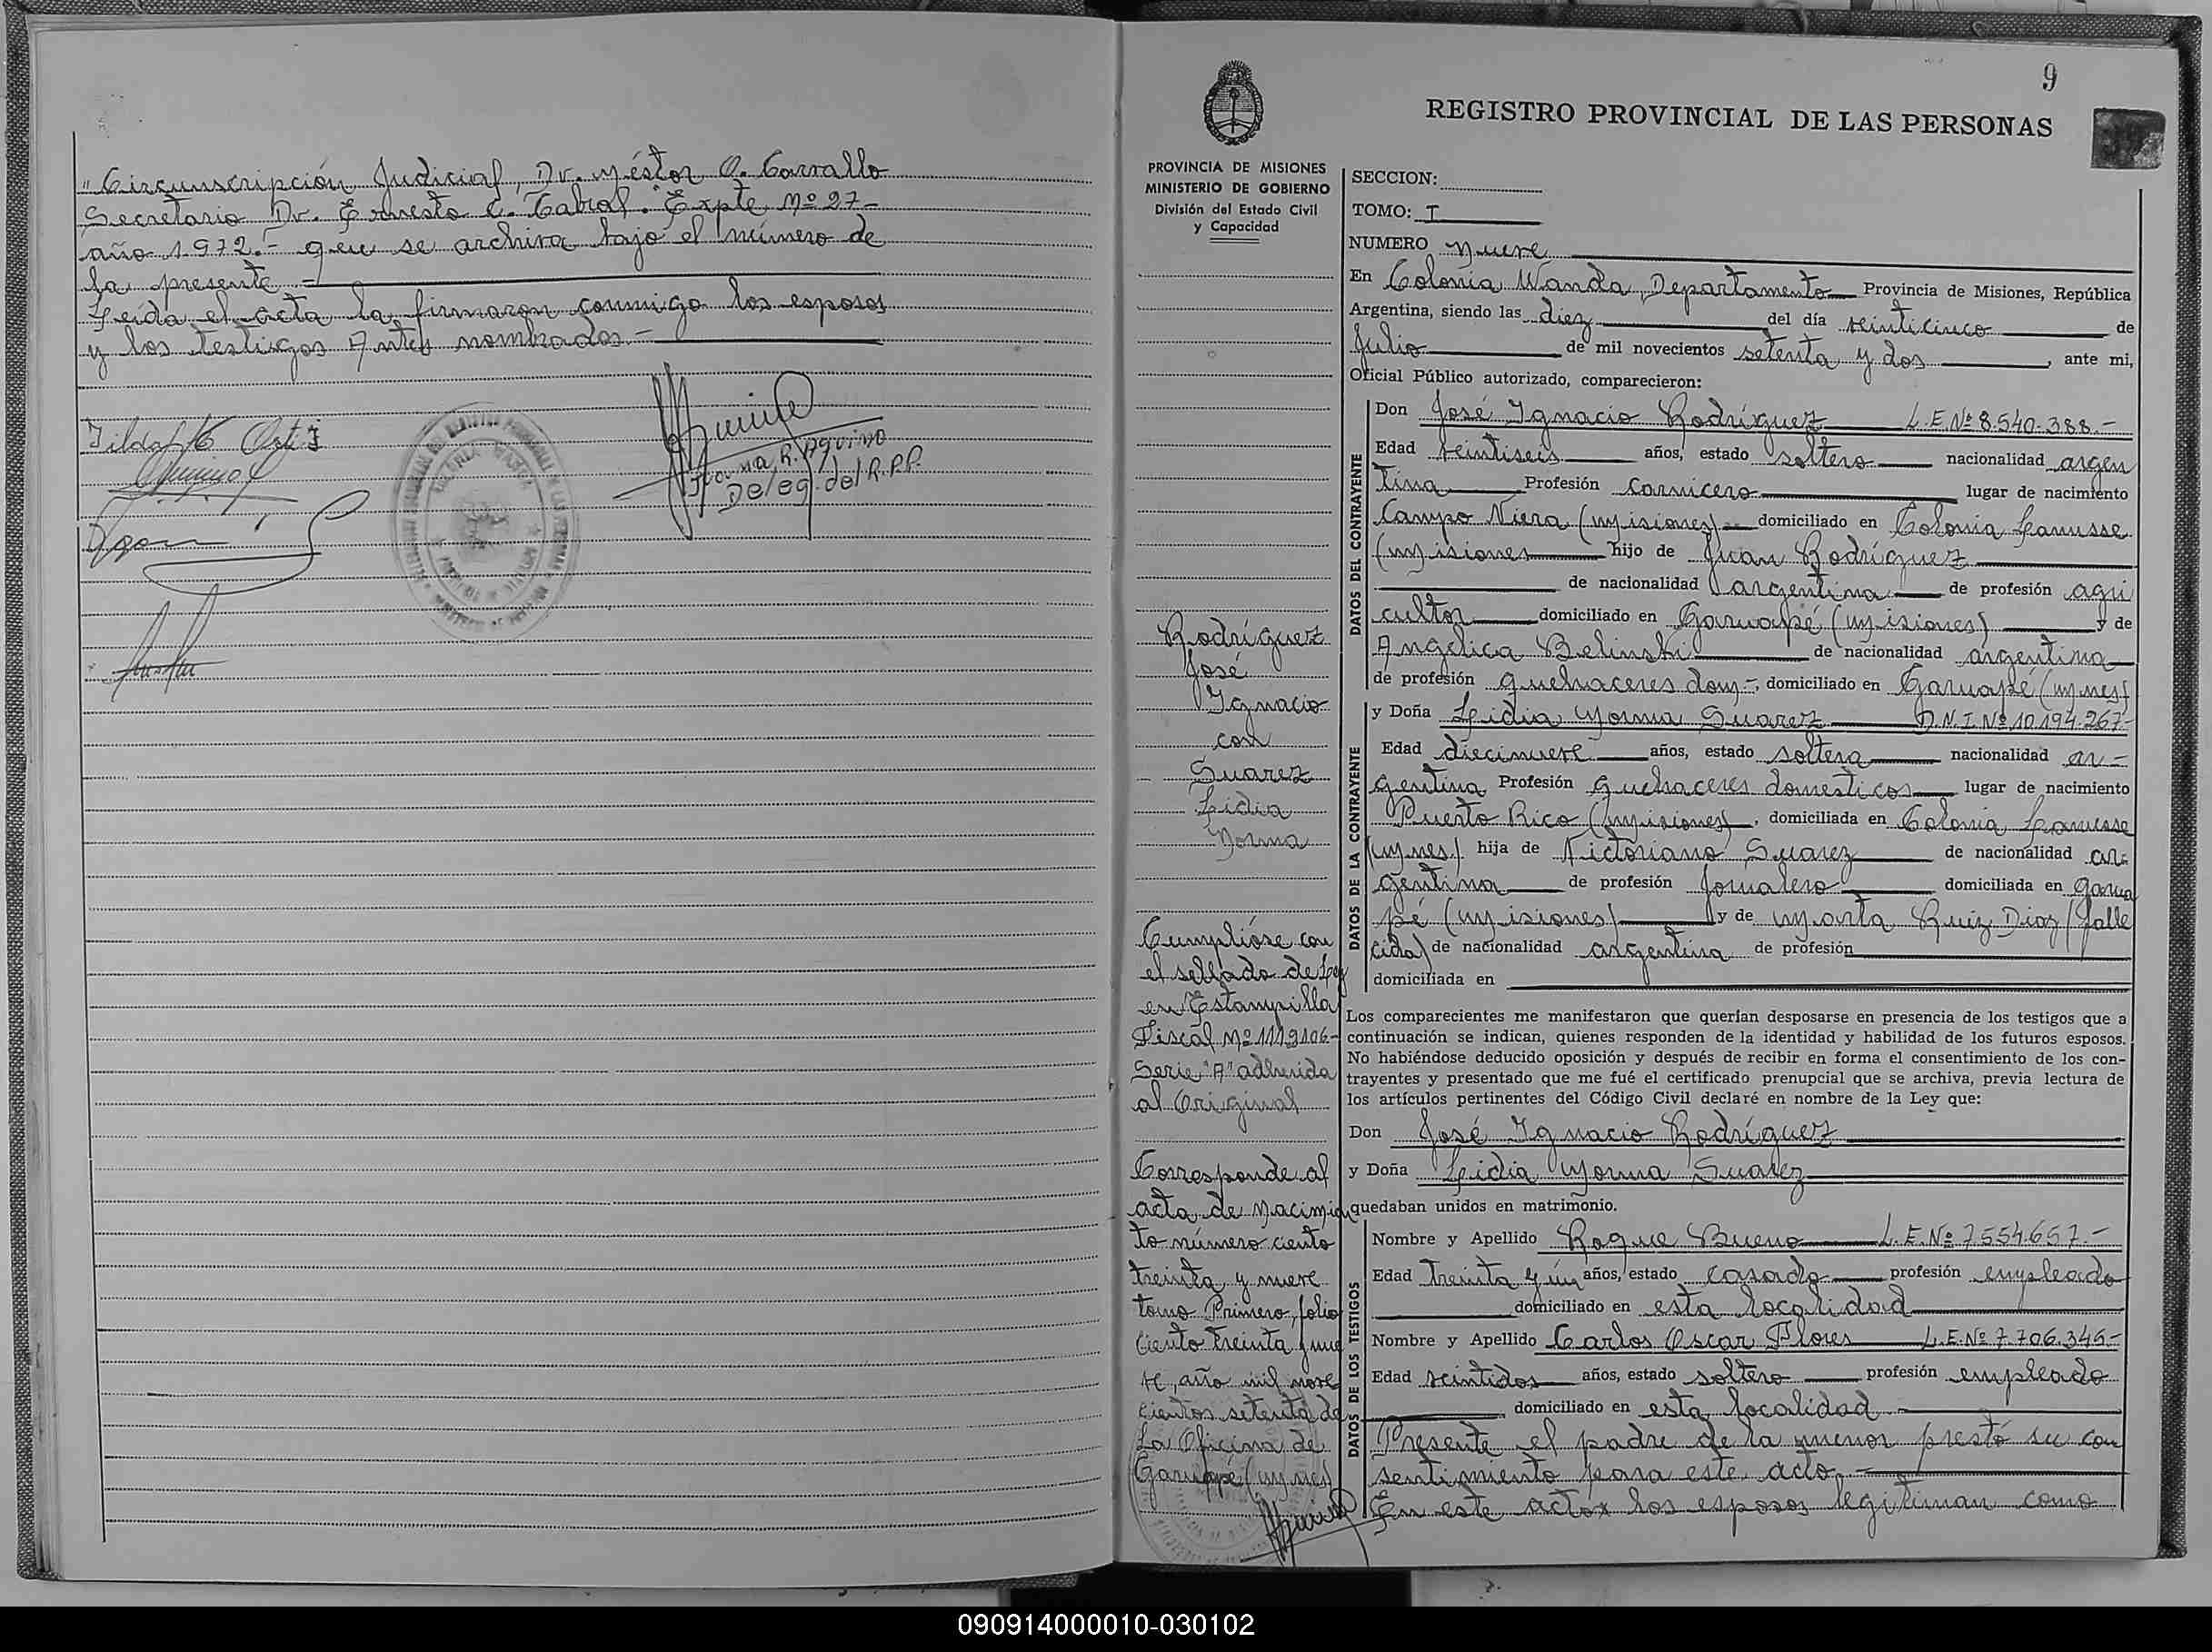 "Circunscripción Judicial, Dr. Néstor O. Carvallo
Secretario Dr. Ernesto C. Cabral. Expte Nº 27-
año 1.972.- que se archiva bajo el número de
la presente -
Leída el acta la firmaron conmigo los esposos
y los testigos Antes nombrados.-
Ortiz
R. Aquino
Deleg. del R.P.P.
9
REGISTRO PROVINCIAL DE LAS PERSONAS
PROVINCIA DE MISIONES
MINISTERIO DE GOBIERNO
División del Estado Civil
y Capacidad
SECCION:
TOMO: I
NUMERO Nueve
En Colonia Wanda, Departamento Provincia de Misiones, República
Argentina, siendo las diez del día veinticinco de
Julio de mil novecientos setenta y dos, ante mi,
Oficial Público autorizado, comparecieron:
DATOS DEL CONTRAYENTE
Don José Ignacio Rodríguez L.E.Nº 8.540.388.-
Edad veintiseis años, estado soltero nacionalidad argen
tina Profesión carnicero lugar de nacimiento
Campo Viera (Misiones) domiciliado en Colonia Lanusse
(Misiones hijo de Juan Rodríguez
de nacionalidad argentina de profesión agri
cultor domiciliado en Garuapé (Misiones) y de
Angélica Belinski de nacionalidad argentina
de profesión quehaceres dom-, domiciliado en Garuapé (Mnes)
DATOS DE LA CONTRAYENTE
y Doña Lidia Norma Suarez D.N.I.Nº 10.194.267.-
Edad diecinueve años, estado soltera nacionalidad ar-
gentina Profesión quehaceres domesticos lugar de nacimiento
Puerto Rico (Misiones), domiciliada en Colonia Lanusse
(Mnes) hija de Victoriano Suarez de nacionalidad ar-
gentina de profesión Jornalero domiciliada en Garua
pé (Misiones) y de Marta Ruiz Diaz (falle
cida) de nacionalidad argentina de profesión
domiciliada en
Los comparecientes me manifestaron que querían desposarse en presencia de los testigos que a
continuación se indican, quienes responden de la identidad y habilidad de los futuros esposos.
No habiéndose deducido oposición y después de recibir en forma el consentimiento de los con-
trayentes y presentado que me fué el certificado prenupcial que se archiva, previa lectura de
los artículos pertinentes del Código Civil declaré en nombre de la Ley que:
Don José Ignacio Rodríguez
y Doña Lidia Norma Suarez
quedaban unidos en matrimonio.
DATOS DE LOS TESTIGOS
Nombre y Apellido Roque Bueno L.E.Nº 7554.657.-
Edad treinta y ún años, estado casado profesión empleado
domiciliado en esta localidad
Nombre y Apellido Carlos Oscar Flores L.E.Nº 7.706.346-
Edad veintidos años, estado soltero profesión empleado
domiciliado en esta localidad
Presente el padre de la menor prestó su con
sentimiento para este acto.-
En este acto los esposos legitiman como
Rodríguez
José
Ignacio
con
Suarez
Lidia
Norma
Cumplióse con
el sellado de Ley
en Estampilla
Fiscal Nº 1119106-
Serie "A" adherida
al Original
Corresponde al
acta de Nacimien
to número ciento
treinta y nueve
tomo Primero, folio
ciento treinta y nue
ve, año mil nove
cientos setenta de
La Oficina de
Garuapé (Mnes)
090914000010-030102